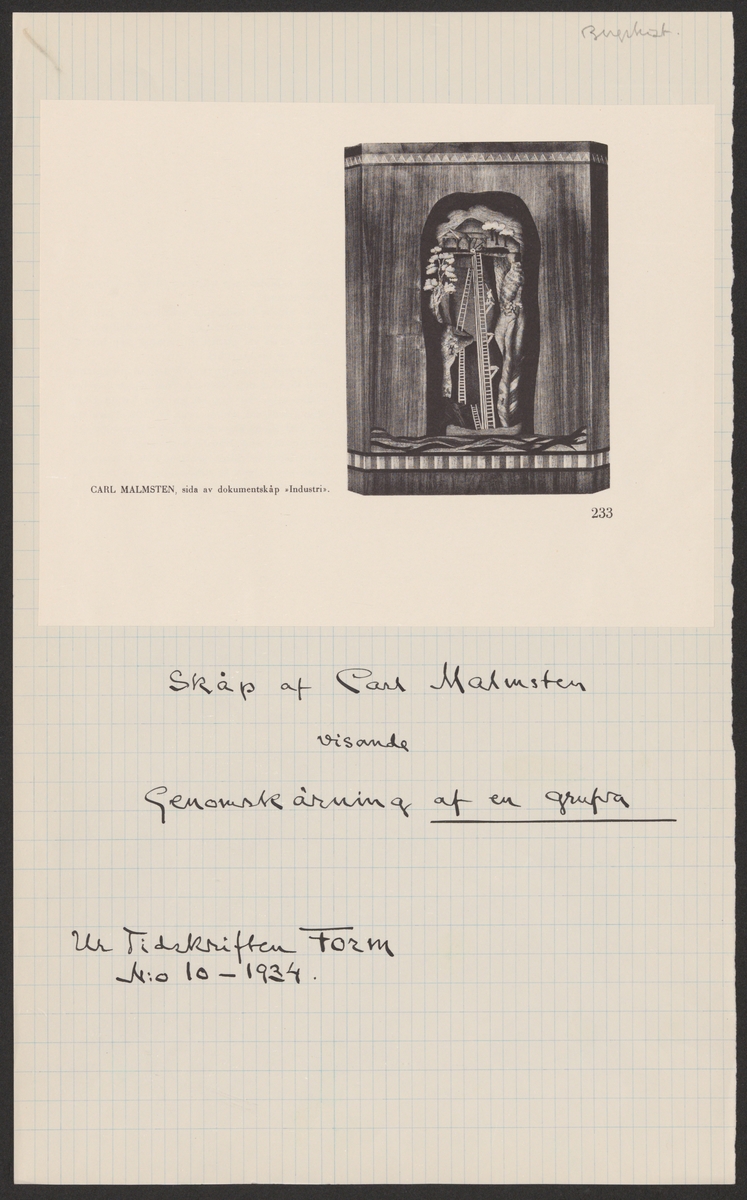 CARL MALMSTEN, sida av dokumentskåp »Industri».
233
Skåp af Carl Malmsten
visande
Genomskärning af en grufva
Ur Tidskriften Form
N:o 10 – 1934.